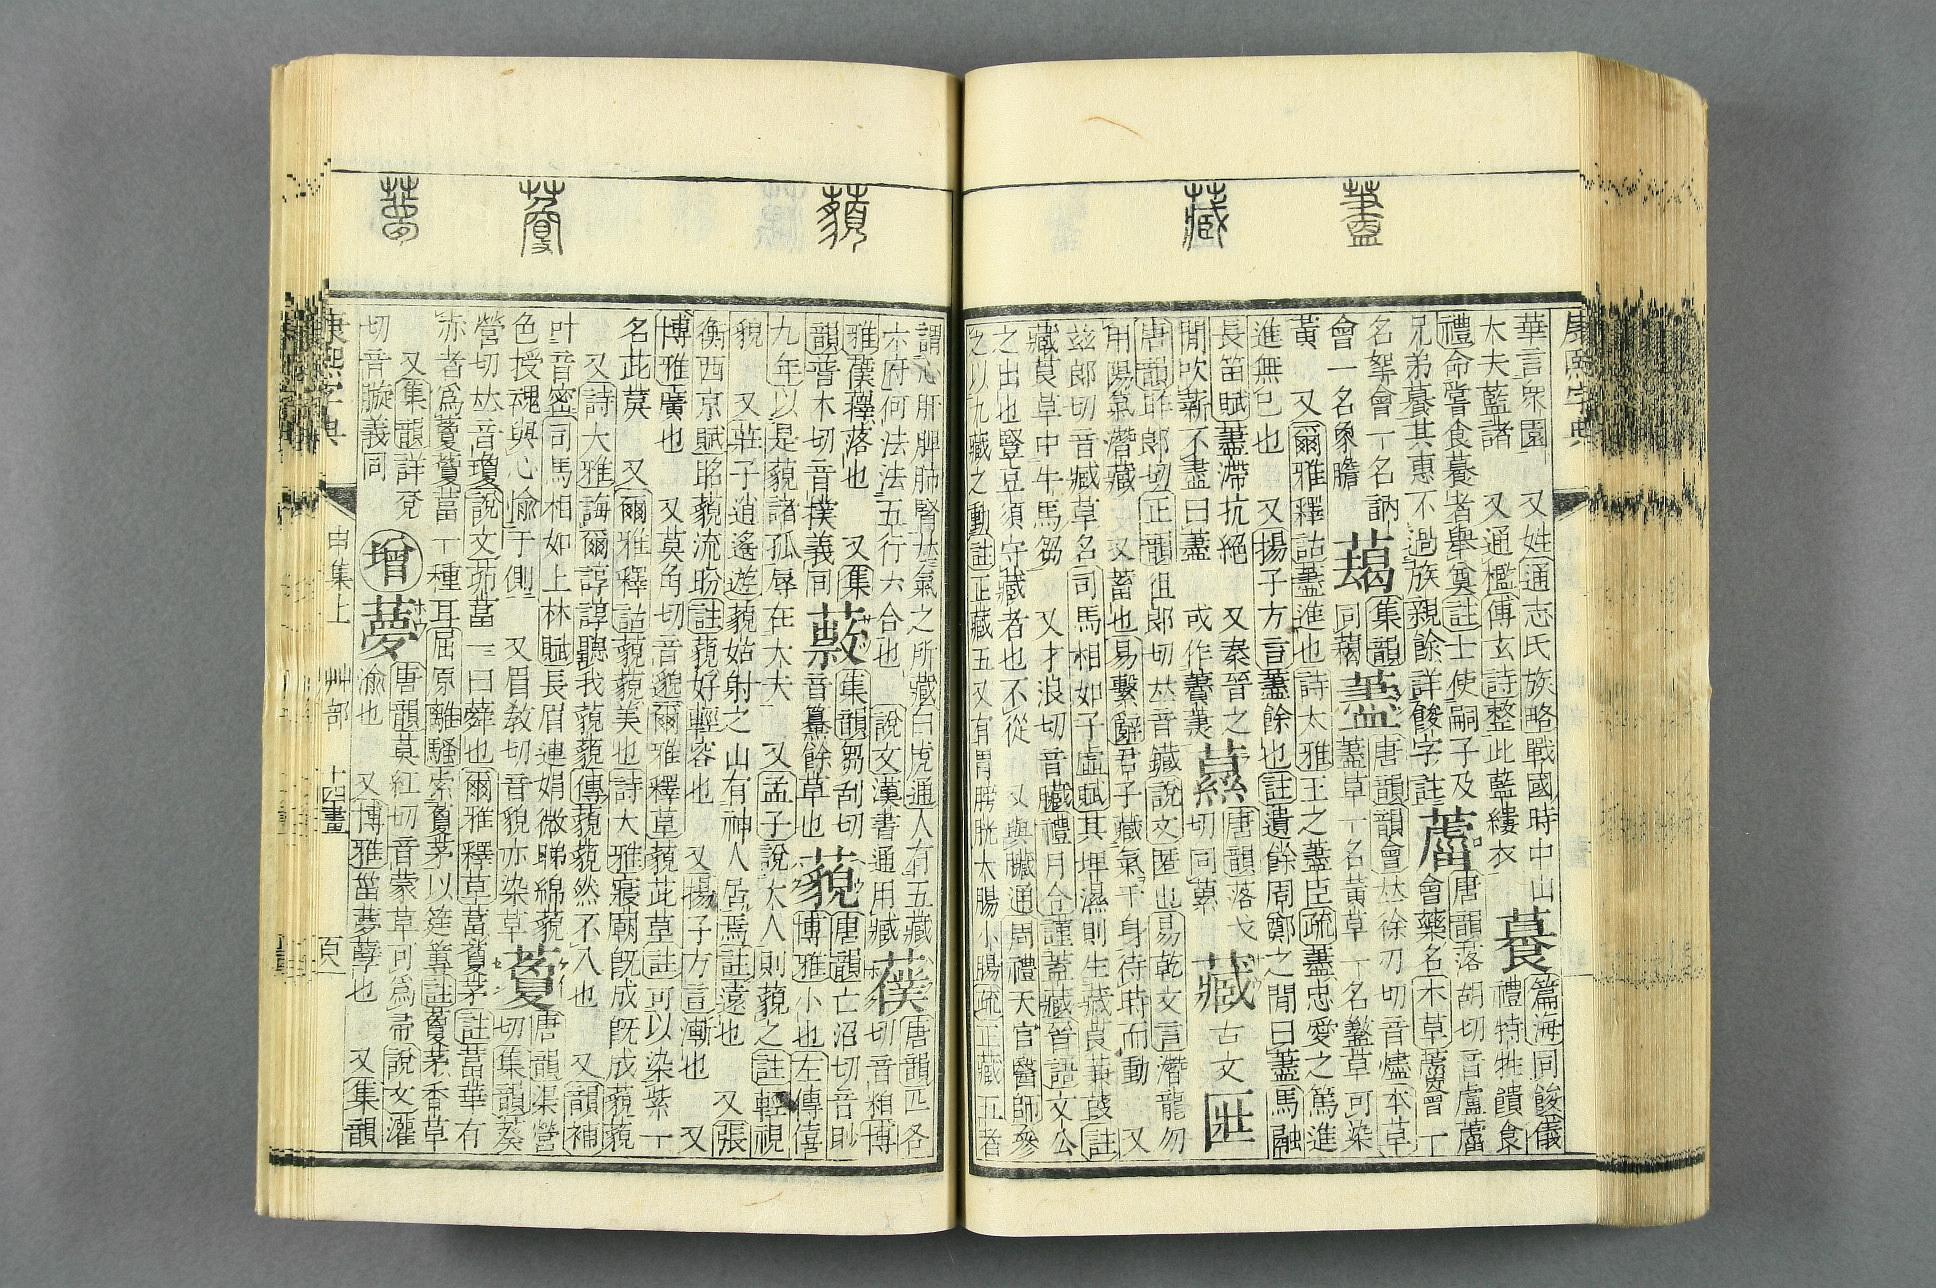 藎
藏
康熙字典
華言眾園 又姓通志氏族略戰國時中山
大夫藍諸 又通檻傅玄詩整此藍縷衣
篇海同餕儀
禮特牲饋食
禮命嘗食者舉奠註士使嗣子及
兄弟其惠不過族親餘詳餕字註
藘
唐韻落胡切音盧藘
會藥名本草藘會一
名拏會一名訥
會一名象膽
集韻
同藒
藎
唐韻韻會𠀤徐刃切音燼本草
藎草一名黃草一名盭草可染
黃 又爾雅釋詁藎進也詩大雅王之藎臣疏藎忠愛之篤進
進無已也 又揚子方言藎餘也註遺餘周鄭之閒曰藎馬融
長笛賦藎滯抗絕 又秦晉之
閒吹薪不盡曰藎 或作
唐韻落戈
切同蔂
藏
古文
匨
唐韻昨郎切正韻徂郎切𠀤音鑶說文匿也易乾文言潛龍勿
用陽氣潛藏 又蓄也易繫辭君子藏氣于身待時而動 又
茲郎切音臧草名司馬相如子虛賦其埤濕則生藏莨蒹葭註
藏莨草中牛馬芻 又才浪切音臟禮月令謹蓋藏晉語文公
之出也豎豆須守藏者也不從 又與臟通周禮天官醫師參
之以九藏之動註正藏五又有胃膀胱大腸小腸疏正藏五者
藐
藑
夢
謂心肝脾肺腎𠀤氣之所藏白虎通人有五藏
六府何法法五行六合也 說文漢書通用臧
唐韻匹各
切音粕博
雅落也 又集
韻普木切音撲義同
集韻芻刮切
音纂餘草也
藐
唐韻亡沼切音眇
博雅小也左傳僖
九年以是藐諸孤辱在大夫 又孟子說大人則藐之註輕視
貌 又莊子逍遙遊藐姑射之山有神人居焉註遠也 又張
衡西京賦眳藐流盼註藐好輕容也 又揚子方言漸也 又
博雅廣也 又莫角切音邈爾雅釋草藐茈草註可以染紫一
名茈䓞 又爾雅釋詁藐藐美也詩大雅寢廟旣成旣成藐藐
又詩大雅誨爾諄諄聽我藐藐傳藐藐然不入也 又韻補
叶音密司馬相如上林賦長眉連娟微睇綿藐
色授魂與心愉于側 又眉敎切音貌亦染草
藑
唐韻渠營
切集韻葵
營切𠀤音瓊說文茅葍一曰蕣也爾雅釋草葍藑茅註葍華有
赤者爲藑藑葍一種耳屈原離騷索藑茅以筳篿註藑茅香草
又集韻詳兗
切音旋義同
增
夢
唐韻莫紅切音蒙草可爲帚說文灌
渝也 又博雅菑夢孽也 又集韻
康熙字典 申集上 艸部 十四畫 頁